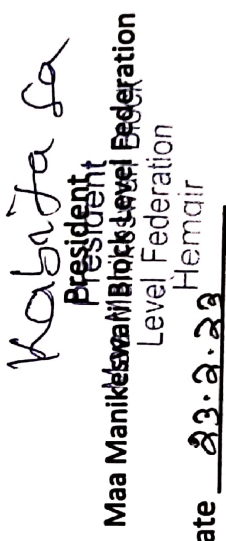 Kabita Sa
President
President
Maa Manikeswari Block Level Federation
Level Federation
Hemgir
ate 23.2.23